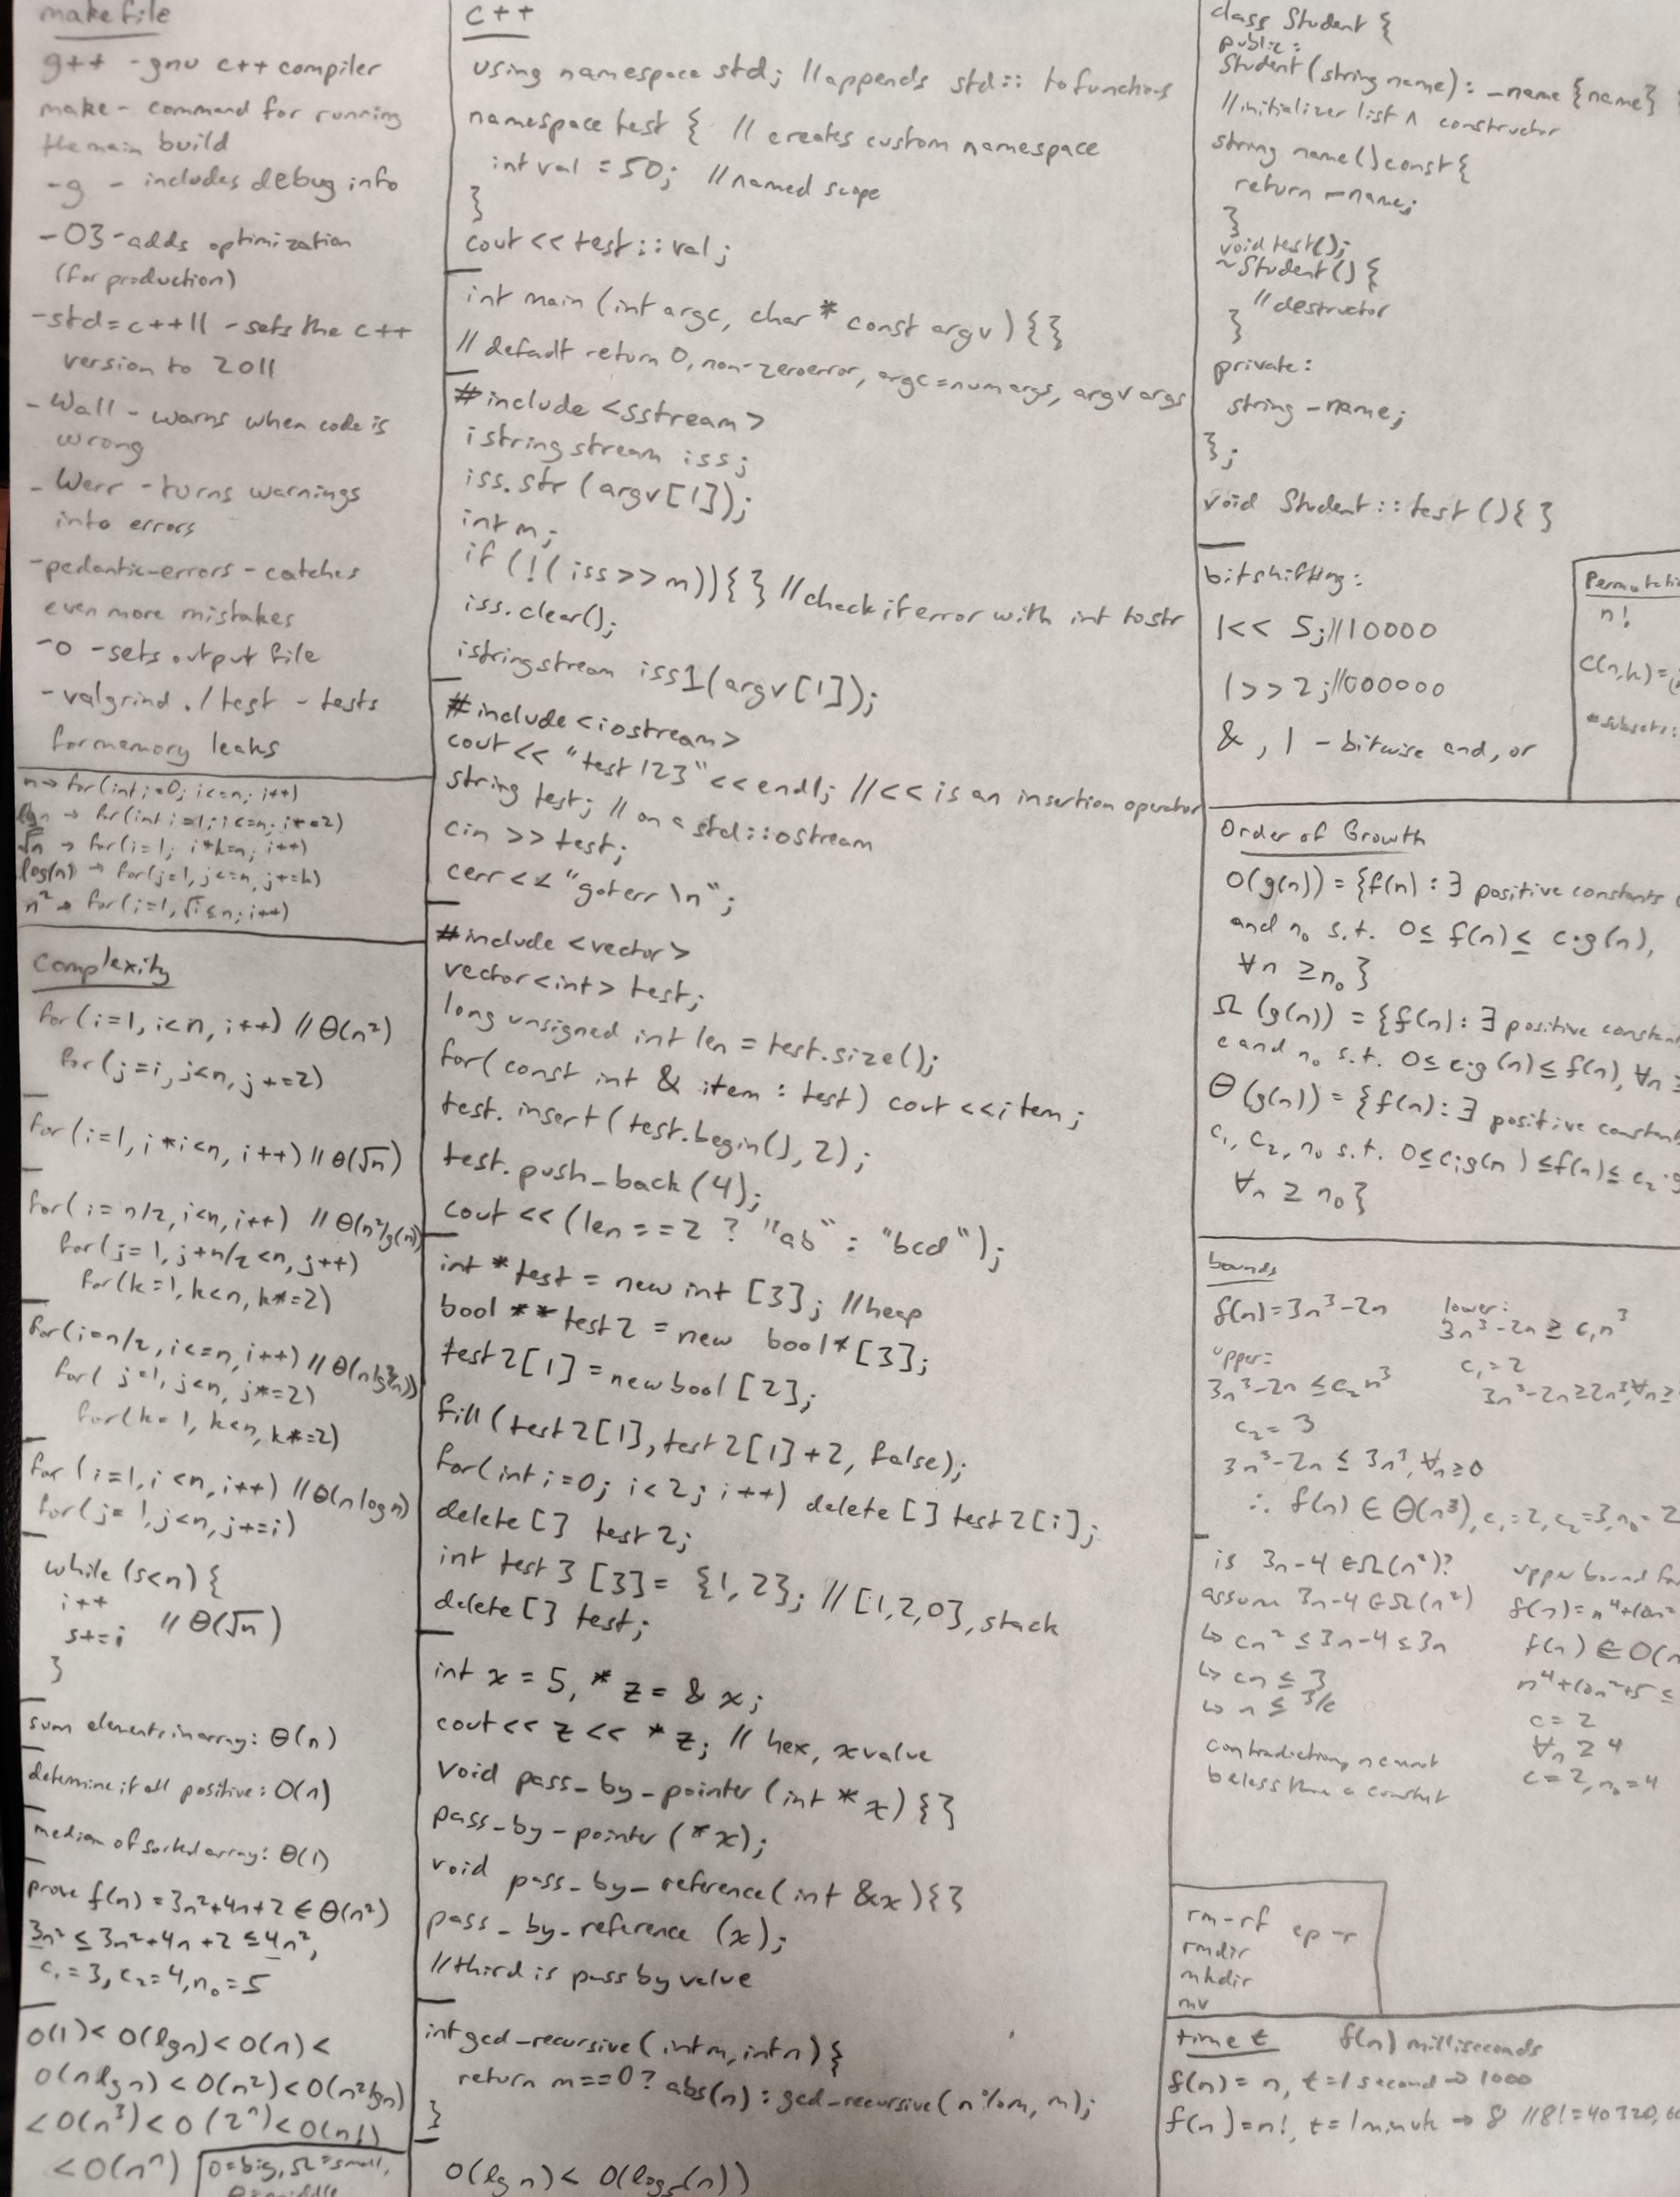 makefile
g++ - gnu c++ compiler
make - command for running
the main build
-g - includes debug info
-O3 - adds optimization
(for production)
-std=c++11 - sets the c++
version to 2011
-Wall - warns when code is
wrong
-Werr - turns warnings
into errors
-pedantic-errors - catches
even more mistakes
-o - sets output file
-valgrind ./test - tests
for memory leaks
n → for(int i=0; i<=n; i++)
lg n → for(int i=1; i<=n; i*=2)
√n → for(i=1; i*k=n; i++)
log(n) → for(j=1, j<=n, j+=k)
n² → for(i=1, √i≤n; i++)
complexity
for(i=1, i<n, i++) // Θ(n²)
for(j=i, j<n, j+=2)
for(i=1, i*i<n, i++) // Θ(√n)
for(i=n/2, i<n, i++) // Θ(n²lg(n))
for(j=1, j+n/2<n, j++)
for(k=1, k<n, k*=2)
for(i=n/2, i<=n, i++) // Θ(nlg²(n))
for(j=1, j<n, j*=2)
for(k=1, k<n, k*=2)
for(i=1, i<n, i++) // Θ(n log n)
for(j=1, j<n, j+=i)
while (s<n) {
i++
s+=i // Θ(√n)
}
sum elements in array: Θ(n)
determine if all positive: O(n)
median of sorted array: Θ(1)
prove f(n) = 3n²+4n+2 ∈ Θ(n²)
3n² ≤ 3n²+4n+2 ≤ 4n²,
c₁=3, c₂=4, n₀=5
O(1) < O(lg n) < O(n) <
O(n lg n) < O(n²) < O(n² lg n)
< O(n³) < O(2ⁿ) < O(n!)
< O(nⁿ)
O=big, Ω=small,
c++
using namespace std; // appends std:: to functions
namespace test { // creates custom namespace
int val = 50; // named scope
}
cout << test::val;
int main (int argc, char * const argv) {}
// default return 0, non-zero error, argc=num args, argv args
#include <sstream>
istringstream iss;
iss.str(argv[1]);
int m;
if (!(iss>>m)){} // check if error with int to str
iss.clear();
istringstream iss1(argv[1]);
#include <iostream>
cout << "test 123" << endl; // << is an insertion operator
string test; // on a std::ostream
cin >> test;
cerr << "got err \n";
#include <vector>
vector<int> test;
long unsigned int len = test.size();
for(const int & item : test) cout << item;
test.insert(test.begin(), 2);
test.push_back(4);
cout << (len == 2 ? "ab" : "bcd");
int *test = new int [3]; // heap
bool **test2 = new bool*[3];
test2[1] = new bool [2];
fill(test2[1], test2[1]+2, false);
for(int i=0; i<2; i++) delete [] test2[i];
delete [] test2;
int test3 [3] = {1,2}; // [1,2,0], stack
delete [] test;
int x = 5, * z = & x;
cout << z << * z; // hex, x value
void pass_by_pointer (int * x) {}
pass_by_pointer (*x);
void pass_by_reference (int &x) {}
pass_by_reference (x);
// third is pass by value
int gcd_recursive (int m, int n) {
return m==0 ? abs(n) : gcd_recursive(n%m, m);
}
O(lg n) < O(log₅(n))
class Student {
public:
Student(string name): _name {name}
// initializer list ^ constructor
string name() const {
return _name;
}
void test();
~Student() {
// destructor
}
private:
string _name;
};
void Student::test(){ }
bitshifting:
1<< 5; // 10000
1>>2; // 000000
&, | - bitwise and, or
n!
C(n,k)=
# subsets:
Order of Growth
O(g(n)) = {f(n) : ∃ positive constants
and n₀ s.t. 0≤ f(n) ≤ c·g(n),
∀n ≥n₀}
Ω (g(n)) = {f(n) : ∃ positive
c and n₀ s.t. 0≤ c·g(n) ≤ f(n), ∀n
Θ (g(n)) = {f(n): ∃ positive
c₁, c₂, n₀ s.t. 0≤c₁g(n) ≤f(n)≤ c₂·g
∀n ≥ n₀}
bounds
f(n)=3n³-2n
upper:
3n³-2n ≤ c₂n³
c₂ = 3
3n³-2n ≤ 3n³, ∀n≥0
lower:
3n³-2n ≥ c₁n³
c₁=2
3n³-2n≥2n³, ∀n≥
∴ f(n) ∈ Θ(n³), c₁=2, c₂=3, n₀=2
is 3n-4 ∈Ω(n²)?
assume 3n-4 ∈Ω(n²)
↳ cn² ≤ 3n-4 ≤ 3n
↳ cn ≤ 3
↳ n ≤ 3/c
contradiction, n cannot
be less than a constant
upper bound for
f(n)=n⁴+10n²
f(n) ∈ O(n
n⁴+10n²+5 ≤
c = 2
∀n ≥ 4
c=2, n₀=4
rm -rf cp -r
rmdir
mkdir
mv
time t f(n) milliseconds
f(n) = n, t=1 second → 1000
f(n) = n!, t=1 minute → 8 // 8! = 40320,